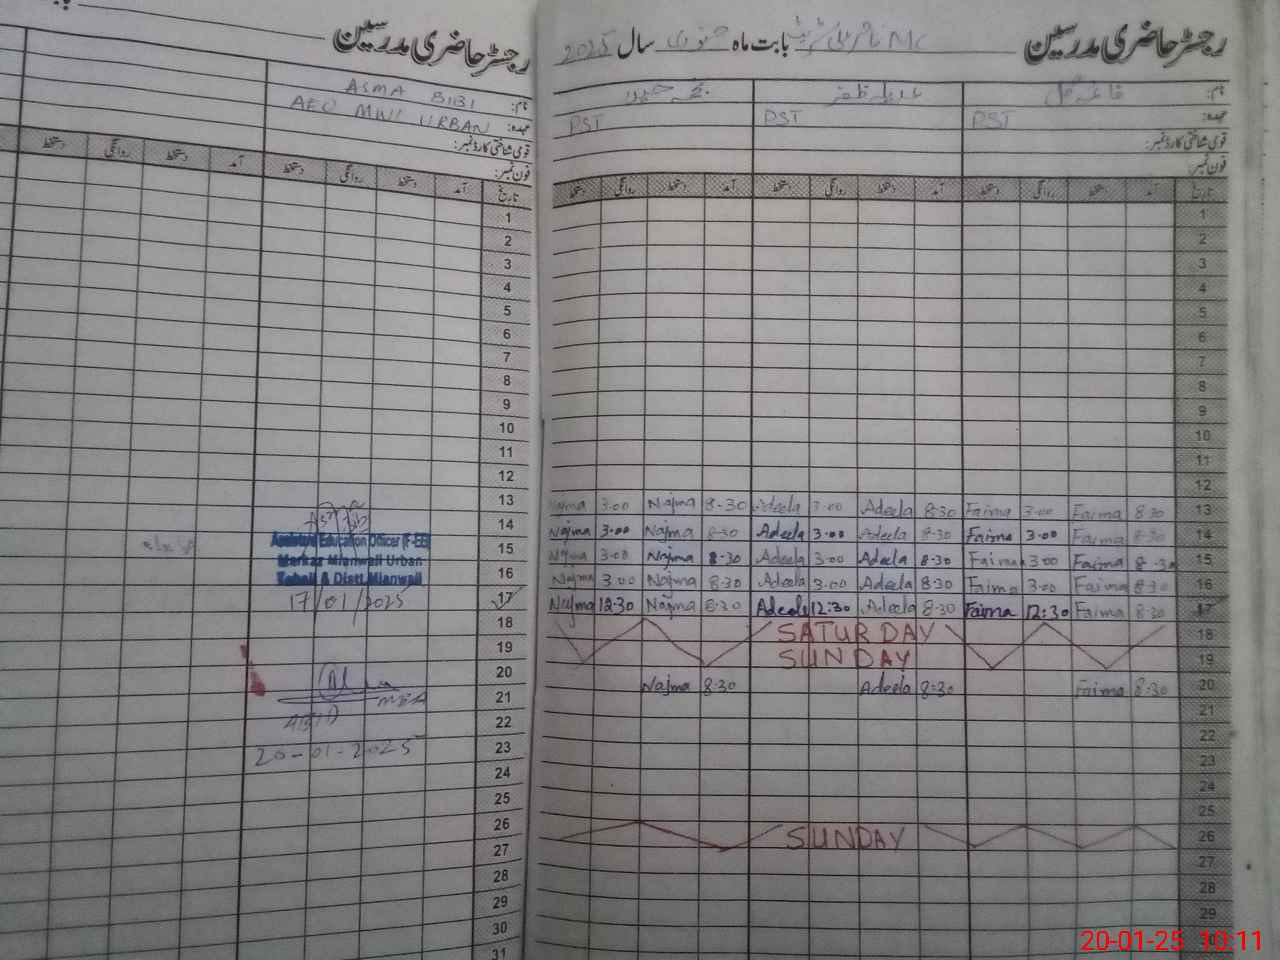 رجسٹر حاضری مدرسین
نام: ASMA BIBI
عہدہ: AEO MWI URBAN
قومی شناختی کارڈ نمبر:
فون نمبر:
تاریخ آمد دستخط روانگی دستخط آمد دستخط روانگی دستخط
1
2
3
4
5
6
7
8
9
10
11
12
13
14
15
16
17
18
19
20
21
22
23
24
25
26
27
28
29
30
31
Assistant Education Officer (F-EE)
Markaz Mianwali Urban
Tehsil & Distt Mianwali
17/01/2025
ABID MEA
20-01-2025
رجسٹر حاضری مدرسین MC بابت ماہ جنوری سال 2025
نام: عدیلہ ظفر
عہدہ: PST PST PST
قومی شناختی کارڈ نمبر:
فون نمبر:
تاریخ آمد دستخط روانگی دستخط آمد دستخط روانگی دستخط آمد دستخط روانگی دستخط
1
2
3
4
5
6
7
8
9
10
11
12
Najma 3.00 Najma 8-30 Adeela 3.00 Adeela 8.30 Faima 3.00 Faima 8.30 13
Najma 3.00 Najma 8-30 Adeela 3.00 Adeela 8.30 Faima 3.00 Faima 8-30 14
Najma 3.00 Najma 8.30 Adeela 3.00 Adeela 8.30 Faima 3.00 Faima 8-30 15
Najma 3.00 Najma 8.30 Adeela 3.00 Adeela 8.30 Faima 3.00 Faima 8.30 16
Najma 12.30 Najma 8.30 Adeela 12:30 Adeela 8.30 Faima 12:30 Faima 8.30 17
SATURDAY 18
SUNDAY 19
Najma 8.30 Adeela 8:30 Faima 8.30 20
21
22
23
24
25
SUNDAY 26
27
28
29
20-01-25 10:11